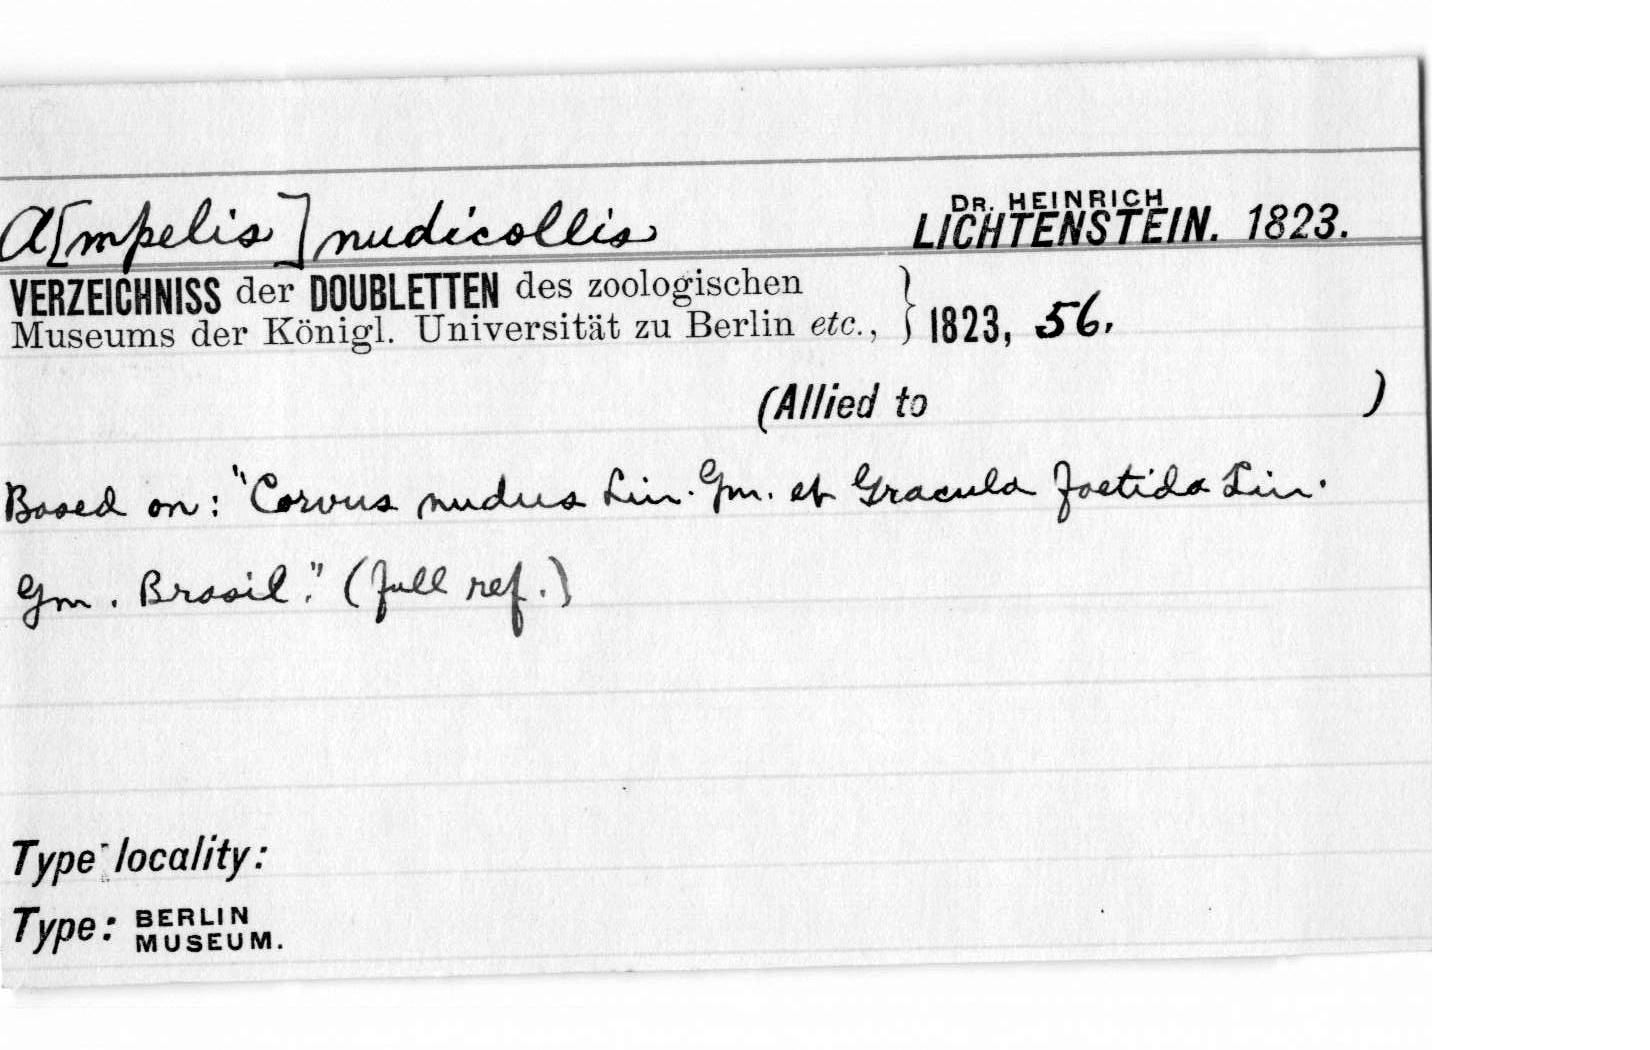 A[mpelis] nudicollis DR. HEINRICH LICHTENSTEIN. 1823.
VERZEICHNISS der DOUBLETTEN des zoologischen
Museums der Königl. Universität zu Berlin etc., } 1823, 56.
(Allied to )
Based on: "Corvus nudus Lin. Gm. et Gracula foetida Lin.
Gm. Brasil." (full ref.)
Type locality:
Type: BERLIN MUSEUM.